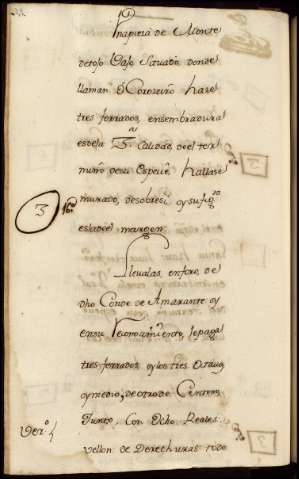 Una pieza de Monte
detojo Baso Situado donde
llaman ô Coroziño haze
tres ferrados ensembradura
es dela 3.ª Calidad, del ter
mino desu Espeçie, hallase
murado, desobresi, y su fig.ra
es la del margen
3
Llevalas, enforo, de
Dho Conde de Amarante y
ensu reconozim.to, le paga
tres ferrados, y los tres octavos
y medio, de otro de Centeno
Junto, con ocho Reales
vellon de Derechuras todo